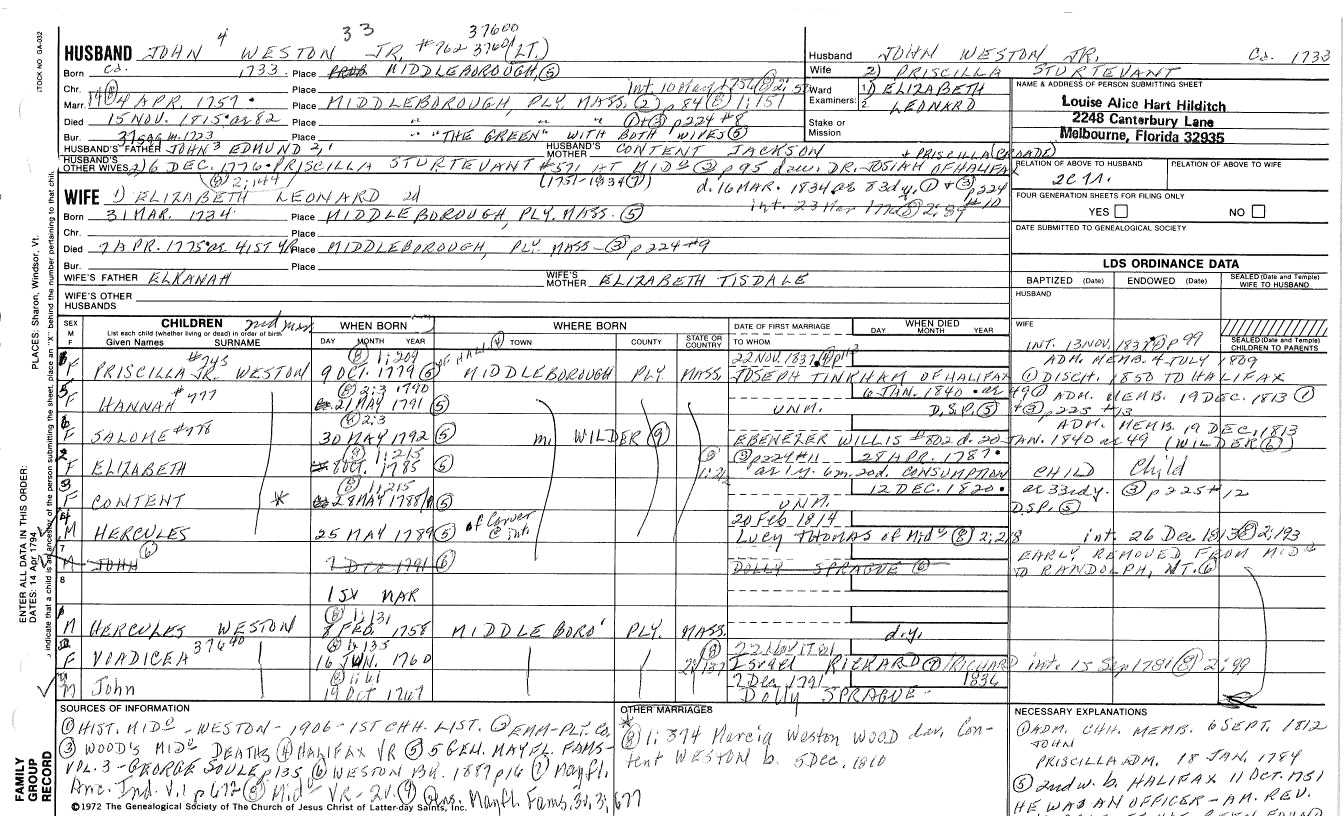 STOCK NO. GA-032
PLACES: Sharon, Windsor, Vt.
ENTER ALL DATA IN THIS ORDER:
DATES: 14 Apr 1794
FAMILY GROUP RECORD
HUSBAND JOHN 4 WESTON 33 JR. #762 37600 37601 (LT.)
Born Ca. 1733 Place MIDDLEBOROUGH, (5)
Chr. Place Int. 10 May 1756 (8) 2;5
Marr. 4 APR. 1757 Place MIDDLEBOROUGH, PLY. MASS. (2) p84 (8) 1;151
Died 15 NOV. 1815 ae 82 Place " " " (1)+(3) p224 #8
Bur. Place " "THE GREEN" WITH BOTH WIVES (5)
HUSBAND'S FATHER JOHN 3 EDMUND 2, 1 HUSBAND'S MOTHER CONTENT JACKSON
HUSBAND'S OTHER WIVES 2) 6 DEC. 1776 PRISCILLA STURTEVANT #571 AT MIDO (3) p95 dau. DR. JOSIAH OF HALIFAX + PRISCILLA
(8) 2;144 (1751-1834 (7)) d. 16 MAR. 1834 ae 83dy. (1) + (3) p224 #10
WIFE 1) ELIZABETH LEONARD 2d int. 23 Mar 1772 (8) 2;89
Born 31 MAR. 1734 Place MIDDLEBOROUGH, PLY. MASS. (5)
Chr. Place
Died 7 APR. 1775 ae 41ST YR Place MIDDLEBOROUGH, PLY. MASS - (3) p224 #9
Bur. Place
WIFE'S FATHER ELKANAH WIFE'S MOTHER ELIZABETH TISDALE
WIFE'S OTHER HUSBANDS
Husband JOHN WESTON JR. Ca. 1733
Wife 2) PRISCILLA STURTEVANT
Ward 1) ELIZABETH
Examiners: 1. 2. LEONARD
Stake or Mission
NAME & ADDRESS OF PERSON SUBMITTING SHEET
Louise Alice Hart Hilditch
2248 Canterbury Lane
Melbourne, Florida 32935
RELATION OF ABOVE TO HUSBAND RELATION OF ABOVE TO WIFE
FOUR GENERATION SHEETS FOR FILING ONLY
YES NO
DATE SUBMITTED TO GENEALOGICAL SOCIETY
LDS ORDINANCE DATA
BAPTIZED (Date) ENDOWED (Date) SEALED (Date and Temple) WIFE TO HUSBAND
HUSBAND
WIFE
SEALED (Date and Temple) CHILDREN TO PARENTS
SEX M F CHILDREN 2nd mar WHEN BORN WHERE BORN DATE OF FIRST MARRIAGE WHEN DIED
List each child (whether living or dead) in order of birth
Given Names SURNAME DAY MONTH YEAR TOWN COUNTY STATE OR COUNTRY TO WHOM DAY MONTH YEAR
#745 (8) 1;209 22 NOV. 1837 INT. 13 NOV. 1837 p99
F PRISCILLA JR. WESTON 9 OCT. 1779 (5) MIDDLEBOROUGH PLY MASS. JOSEPH TINKHAM OF HALIFAX
ADM. MEMB. 4 JULY 1809
(1) DISCH. 1850 TO HALIFAX
5 F HANNAH #777 (8) 2;3 1790 21 MAY 1791 (5) UNM. 6 JAN. 1840 ae 49 D.S.P. (5) + (3) p225 #13
ADM. MEMB. 19 DEC. 1813 (1)
6 F SALOME #778 (8) 2;3 30 MAY 1792 (5) m. WILDER (9) EBENEZER WILLIS #802 d. 20 JAN. 1840 ae 49 (WILDER (6))
ADM. MEMB. 19 DEC. 1813
2 F ELIZABETH (8) 1;215 8 OCT. 1785 (5) (3) p224 #11 28 APR. 1787 ae 1y. 6m. 20d. CONSUMPTION
CHILD Child
3 F CONTENT * (8) 1;215 28 MAY 1788 (5) UNM. 12 DEC. 1820 ae 33dy. (3) p225 #12
D.S.P. (5)
4 M HERCULES 25 MAY 1789 (5) of Carver @ int. 20 Feb 1814 Lucy THOMAS of Mido (8) 2;218 int. 26 Dec 1813 (8) 2;193
7 M JOHN (6) 7 DEC 1791 (6) DOLLY SPRAGUE (6) EARLY REMOVED FROM MIDO TO RANDOLPH, VT. (6)
8 1ST MAR
M HERCULES WESTON (8) 1;131 8 FEB. 1758 MIDDLEBORO' PLY. MASS. d.y.
F VOADICEA 37640 (8) 1;135 16 JUN. 1760 22 NOV 1781 Israel RICKARD (7) /RICHARD int. 15 Sep 1781 (8) 2;99
M John (8) 1;61 19 Oct 1767 7 Dec 1791 Dolly SPRAGUE - 1836
SOURCES OF INFORMATION
(1) HIST. MIDO - WESTON - 1906 - 1ST CHH. LIST. (2) EMM-PLY. CO.
(3) WOOD'S MIDO DEATHS (4) HALIFAX VR (5) 5 GEN. MAYFL. FAMS-
VOL. 3 - GEORGE SOULE p135 (6) WESTON BK. 1887 p16 (7) Mayfl.
Anc. Ind. V.1 p672 (8) Mido VR-2V. (9) Mayfl. Fams, 3V, 3;677
©1972 The Genealogical Society of The Church of Jesus Christ of Latter-day Saints, Inc.
OTHER MARRIAGES
* (8) 1;374 Marcia Weston WOOD dau. Con-
tent WESTON b. 5 Dec. 1810
NECESSARY EXPLANATIONS
(1) ADM. CHH. MEMB. 6 SEPT. 1812
JOHN
PRISCILLA ADM. 18 JAN. 1784
(5) 2nd w. b. HALIFAX 11 OCT. 1751
HE WAS AN OFFICER - AM. REV.